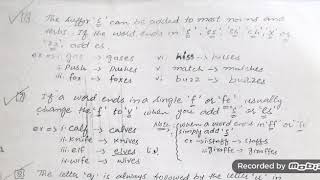 The suffix 's' can be added to most nouns and
verbs. If the word ends in 's', 'es', 'sh', 'ch', 'x' or
'zz', add es.
ex => i. gas → gases    v. kiss → kisses
ii. Push → Pushes    vi. match → matches
iii. fox → foxes    buzz → buzzes
If a word ends in a single 'f' or 'fe', usually
change the 'f' to 'v' when you add 's'.
ex => i. calf → calves    Note: when a word end in 'ff' or 'fe
ii. Knife → knives    simply add 's'
iii. elf → elves    ex → i) staff → staffs
iv. wife → wives    ii) giraffe → giraffes
The letter 'q' is always followed by the letter 'u' in
Recorded by